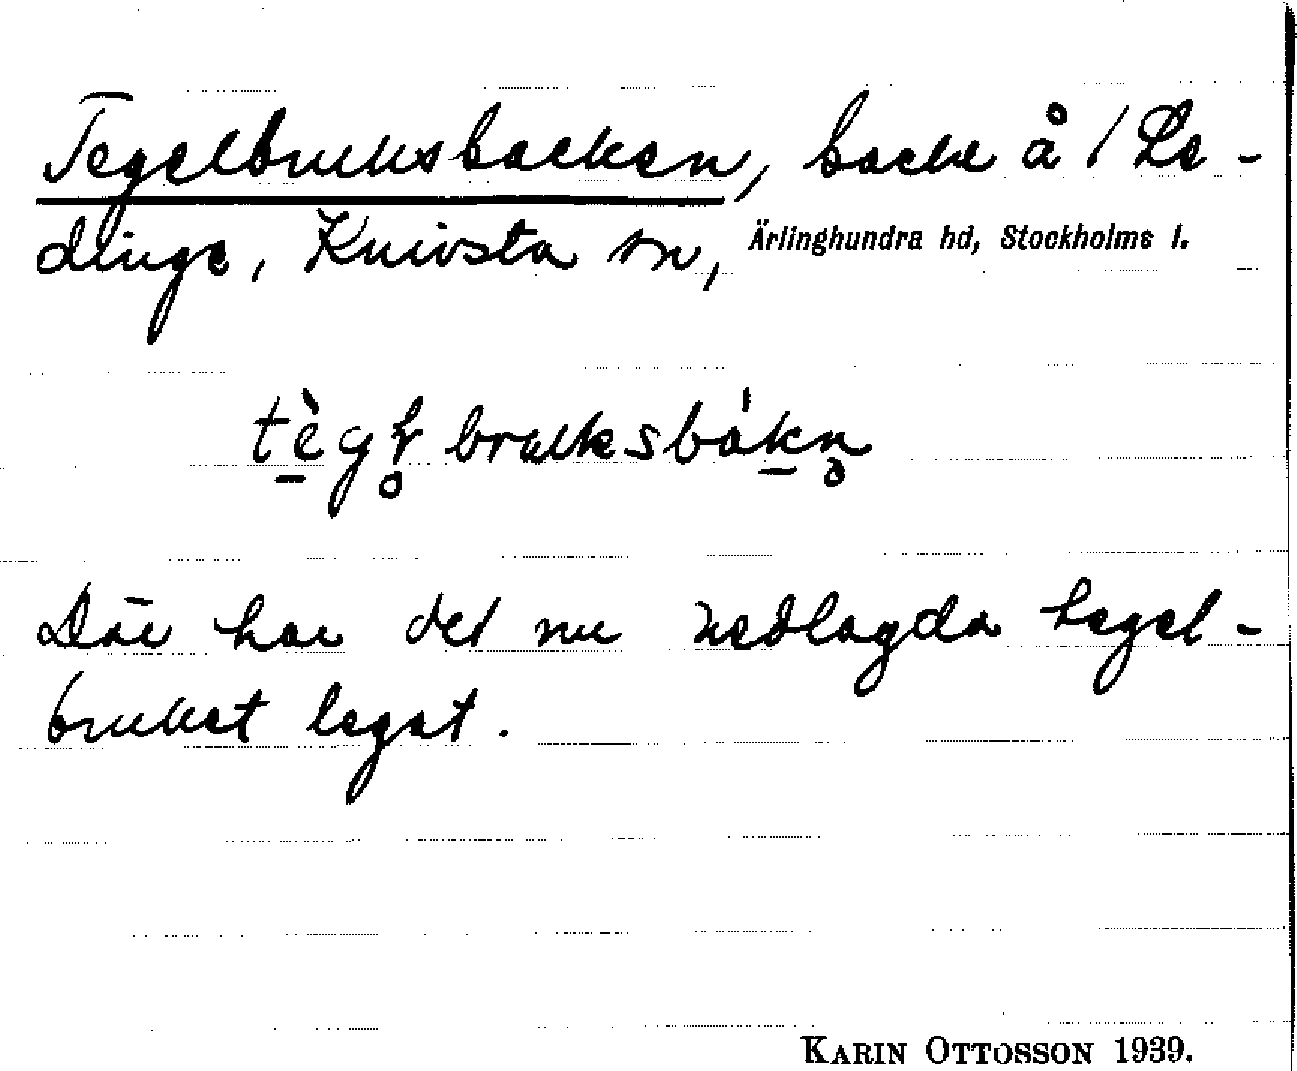 Tegelbruksbacken, backe å / Le-
dinge, Knivsta sn, Ärlinghundra hd, Stockholms l.
tègl̥bruksbákn̥
Där har det nu nedlagda tegel-
bruket legat.
KARIN OTTOSSON 1939.